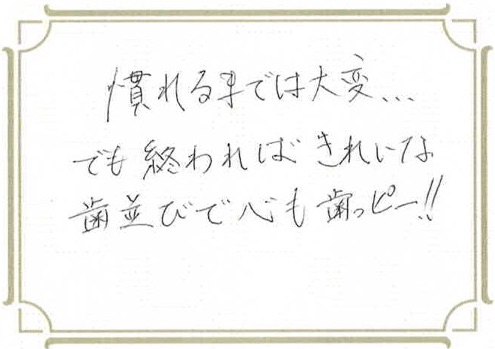 慣れるまでは大変...
でも終わればきれいな
歯並びで心も歯っピー!!